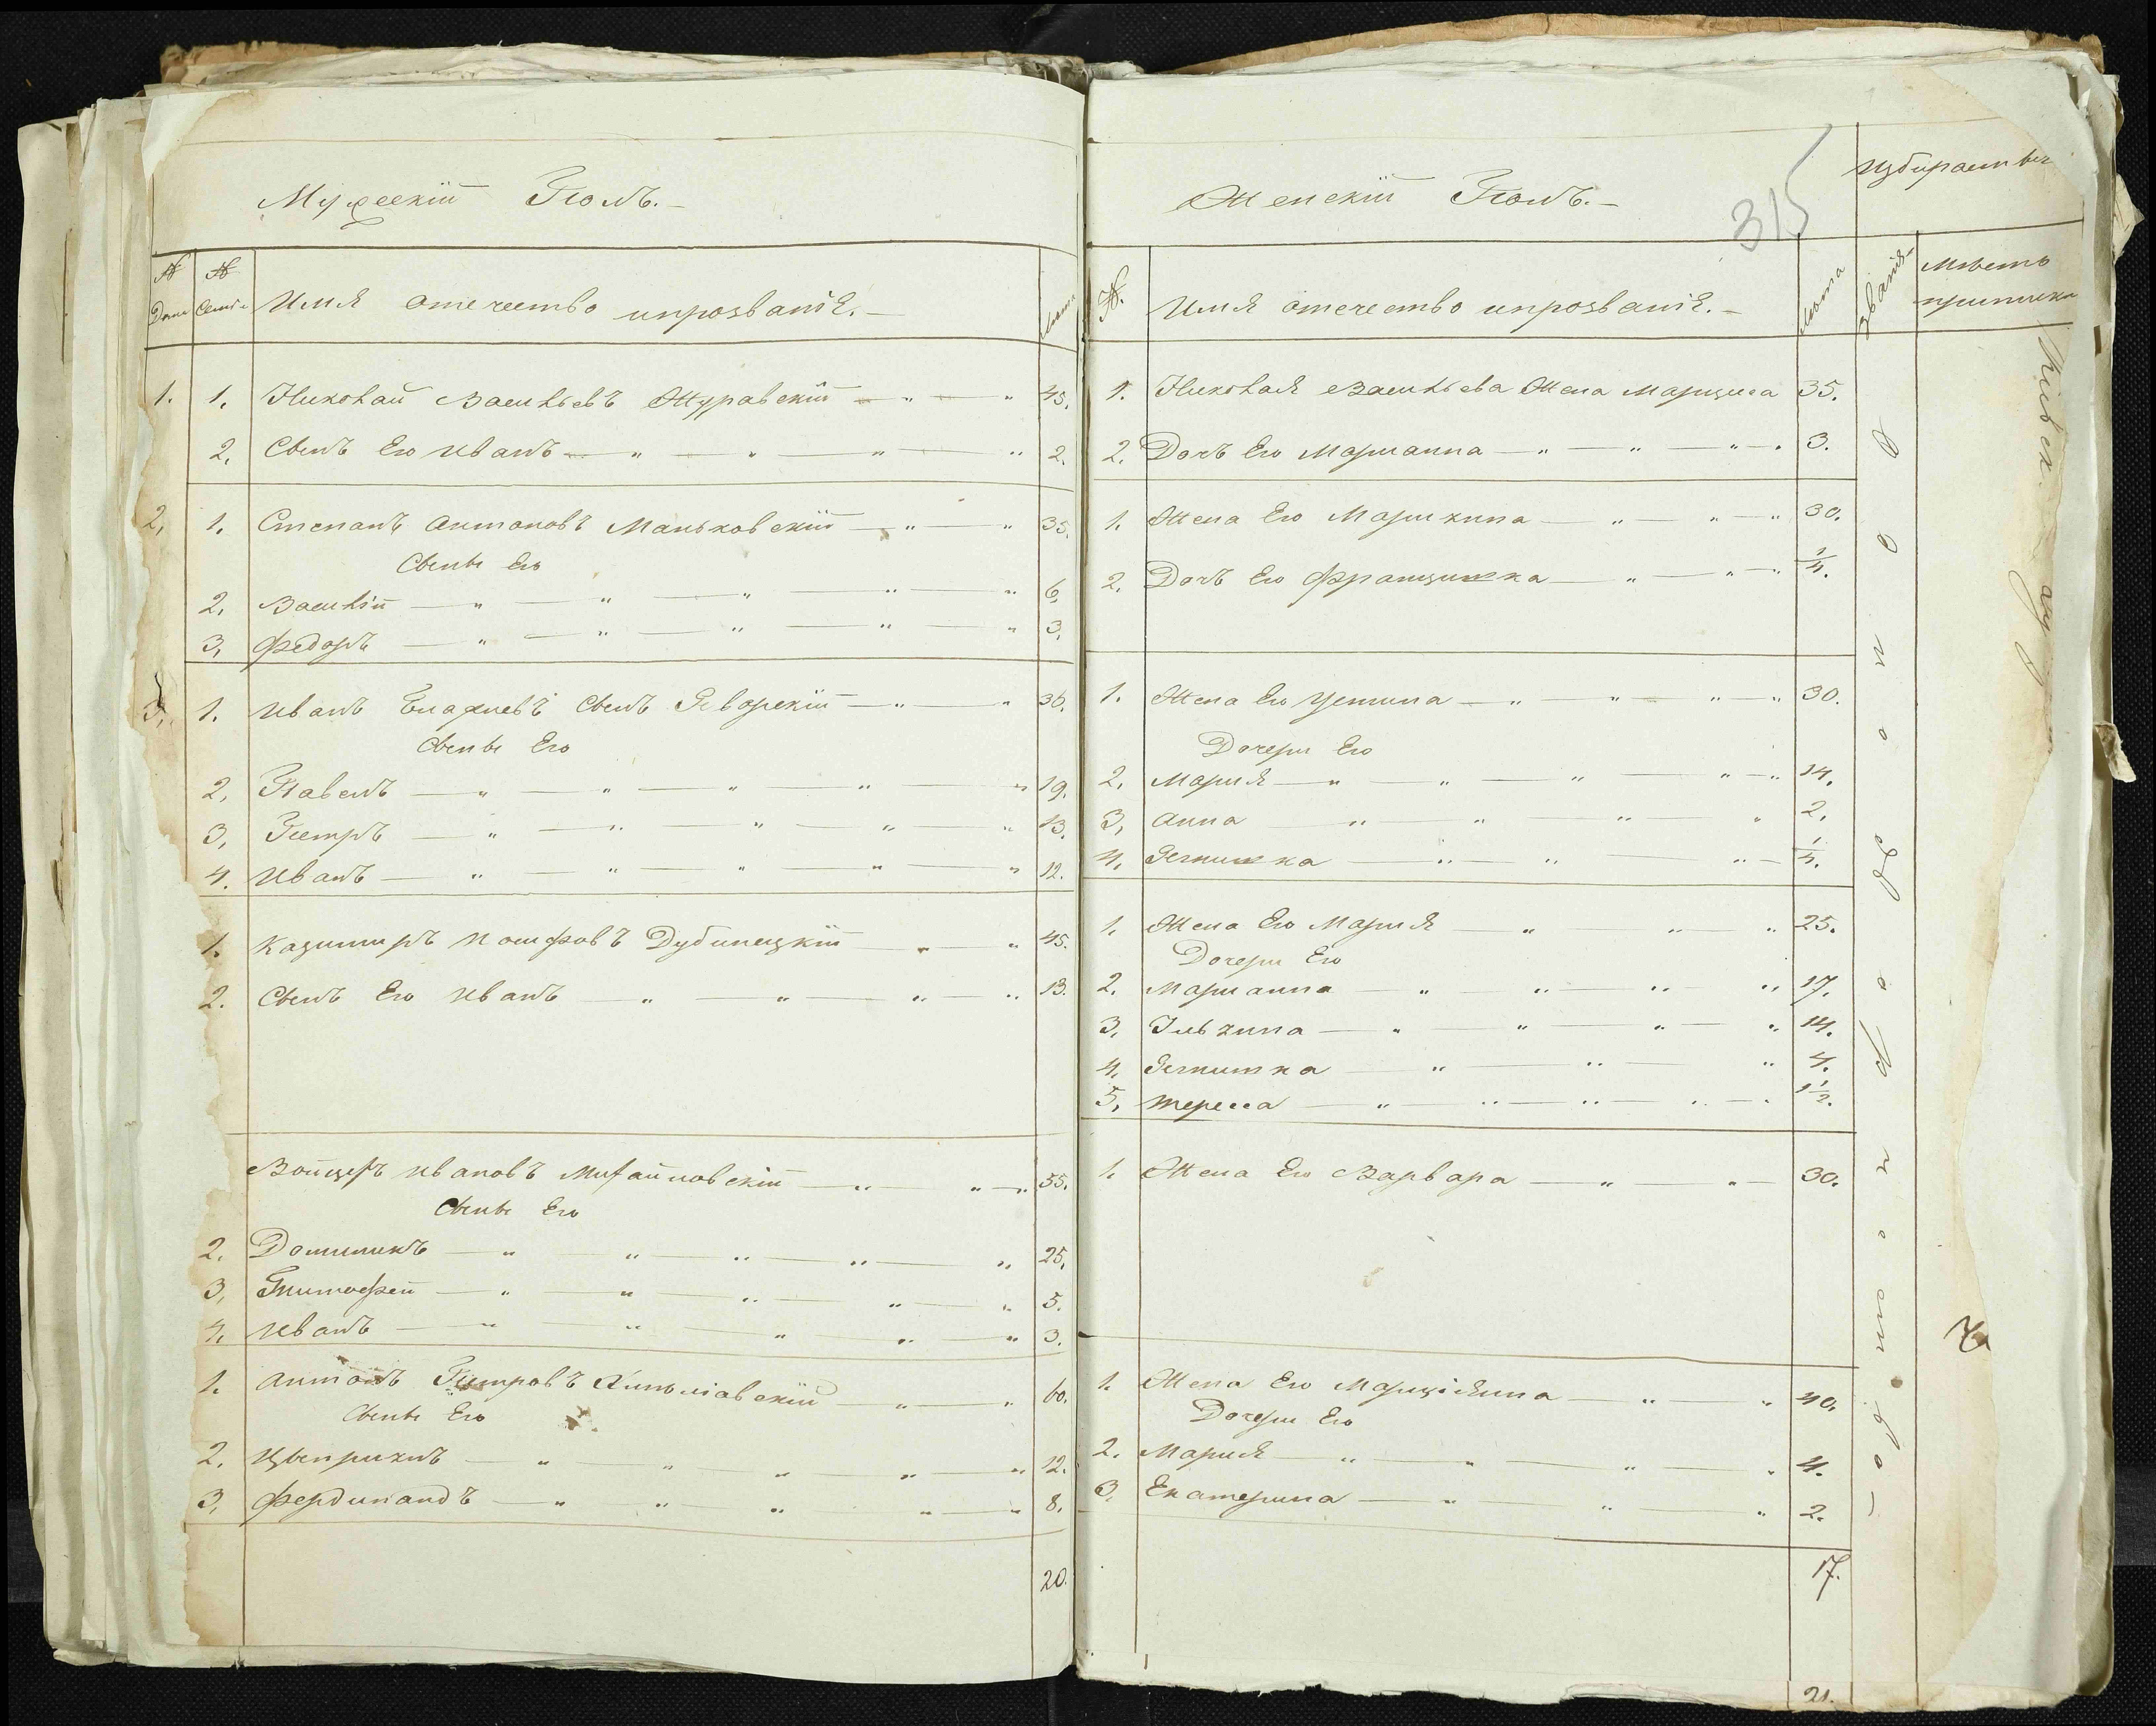 Мужескій Полъ.
№ Дома
№ Семьи
Имя отечество ипрозваніе.
Лѣта
1. 1. Николай Васильевъ Журавскій 45.
2. Сынъ Его Иванъ 2.
2. 1. Степанъ Антоновъ Маньковскій 35.
Сыны Его
2. Василій 6.
3. Федоръ 3.
3. 1. Иванъ Сынъ Яворскій 36.
Сыны Его
2. Павелъ 19.
3. Петръ 13.
4. Иванъ 12.
1. Казимиръ Иосифовъ Дубинецкій 45.
2. Сынъ Его Иванъ 13.
Войцехъ Ивановъ Михайловскій 55.
Сыны Его
2. Доминикъ 25.
3. Тимофей 5.
4. Иванъ 3.
1. Антонъ Петровъ 60.
Сыны Его
2. 12.
3. Фердинандъ 8.
20.
315
Женскій Полъ.
Избираемые
№.
Имя отечество ипрозваніе.
Лѣта
званія
Мѣста
приписки
1. Николая Васильева Жена Марцина 35.
2. Дочь Его Марианна 3.
1. Жена Его Марикина 30.
2. Дочь Его Францишка 1/4.
1. Жена Его Устина 30.
Дочери Его
2. Мария 14.
3. Анна 2.
4. Ягнишка 1/4.
1. Жена Его Мария 25.
Дочери Его
2. Марианна 17.
3. 14.
4. Ягнишка 4.
5. Тереса 1 1/2.
1. Жена Его Варвара 30.
1. Жена Его Марціянна 40.
Дочери Его
2. Мария 4.
3. Екатерина 2.
17.
21.
Однодворчество